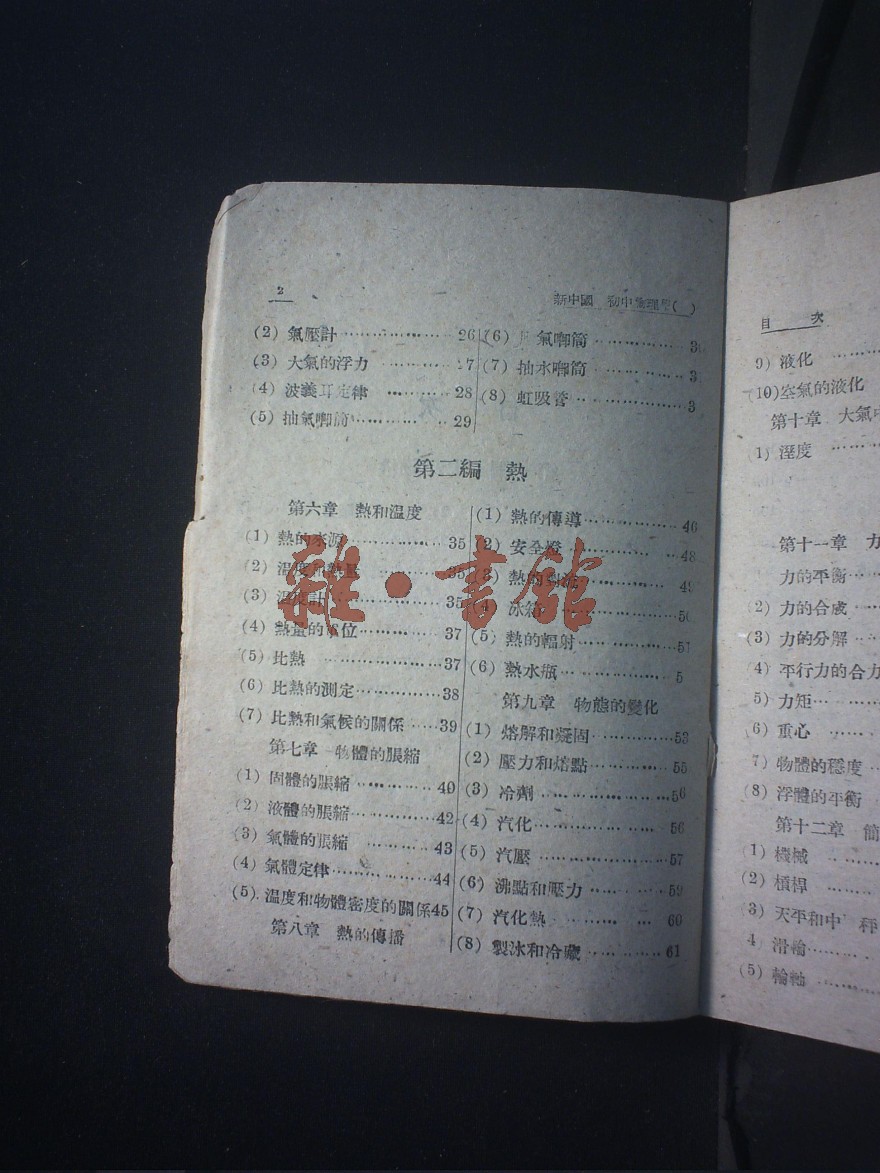 2
新中國 初中物理學( )
(2) 氣壓計 26
(3) 大氣的浮力 27
(4) 波義耳定律 28
(5) 抽氣唧筒 29
(6) 氣唧筒 3
(7) 抽水唧筒 3
(8) 虹吸管 3
第二編 熱
第六章 熱和溫度
(1) 熱的來源 35
(2) 溫度和熱量 35
(3) 溫度計 35
(4) 熱量的單位 37
(5) 比熱 37
(6) 比熱的測定 38
(7) 比熱和氣候的關係 39
第七章 物體的脹縮
(1) 固體的脹縮 40
(2) 液體的脹縮 42
(3) 氣體的脹縮 43
(4) 氣體定律 44
(5) 溫度和物體密度的關係 45
第八章 熱的傳播
(1) 熱的傳導 46
(2) 安全燈 48
(3) 熱的對流 49
(4) 冰箱 50
(5) 熱的輻射 51
(6) 熱水瓶 5
第九章 物態的變化
(1) 熔解和凝固 53
(2) 壓力和熔點 55
(3) 冷劑 56
(4) 汽化 56
(5) 汽壓 57
(6) 沸點和壓力 59
(7) 汽化熱 60
(8) 製冰和冷藏 61
雜·書館
目 次
9) 液化
(10) 空氣的液化
第十章 大氣中
1) 溼度
第十一章 力
力的平衡
2) 力的合成
(3) 力的分解
4) 平行力的合力
5) 力矩
6) 重心
7) 物體的穩度
(8) 浮體的平衡
第十二章 簡
1) 機械
(2) 槓桿
3) 天平和中 秤
4 滑輪
(5) 輪軸